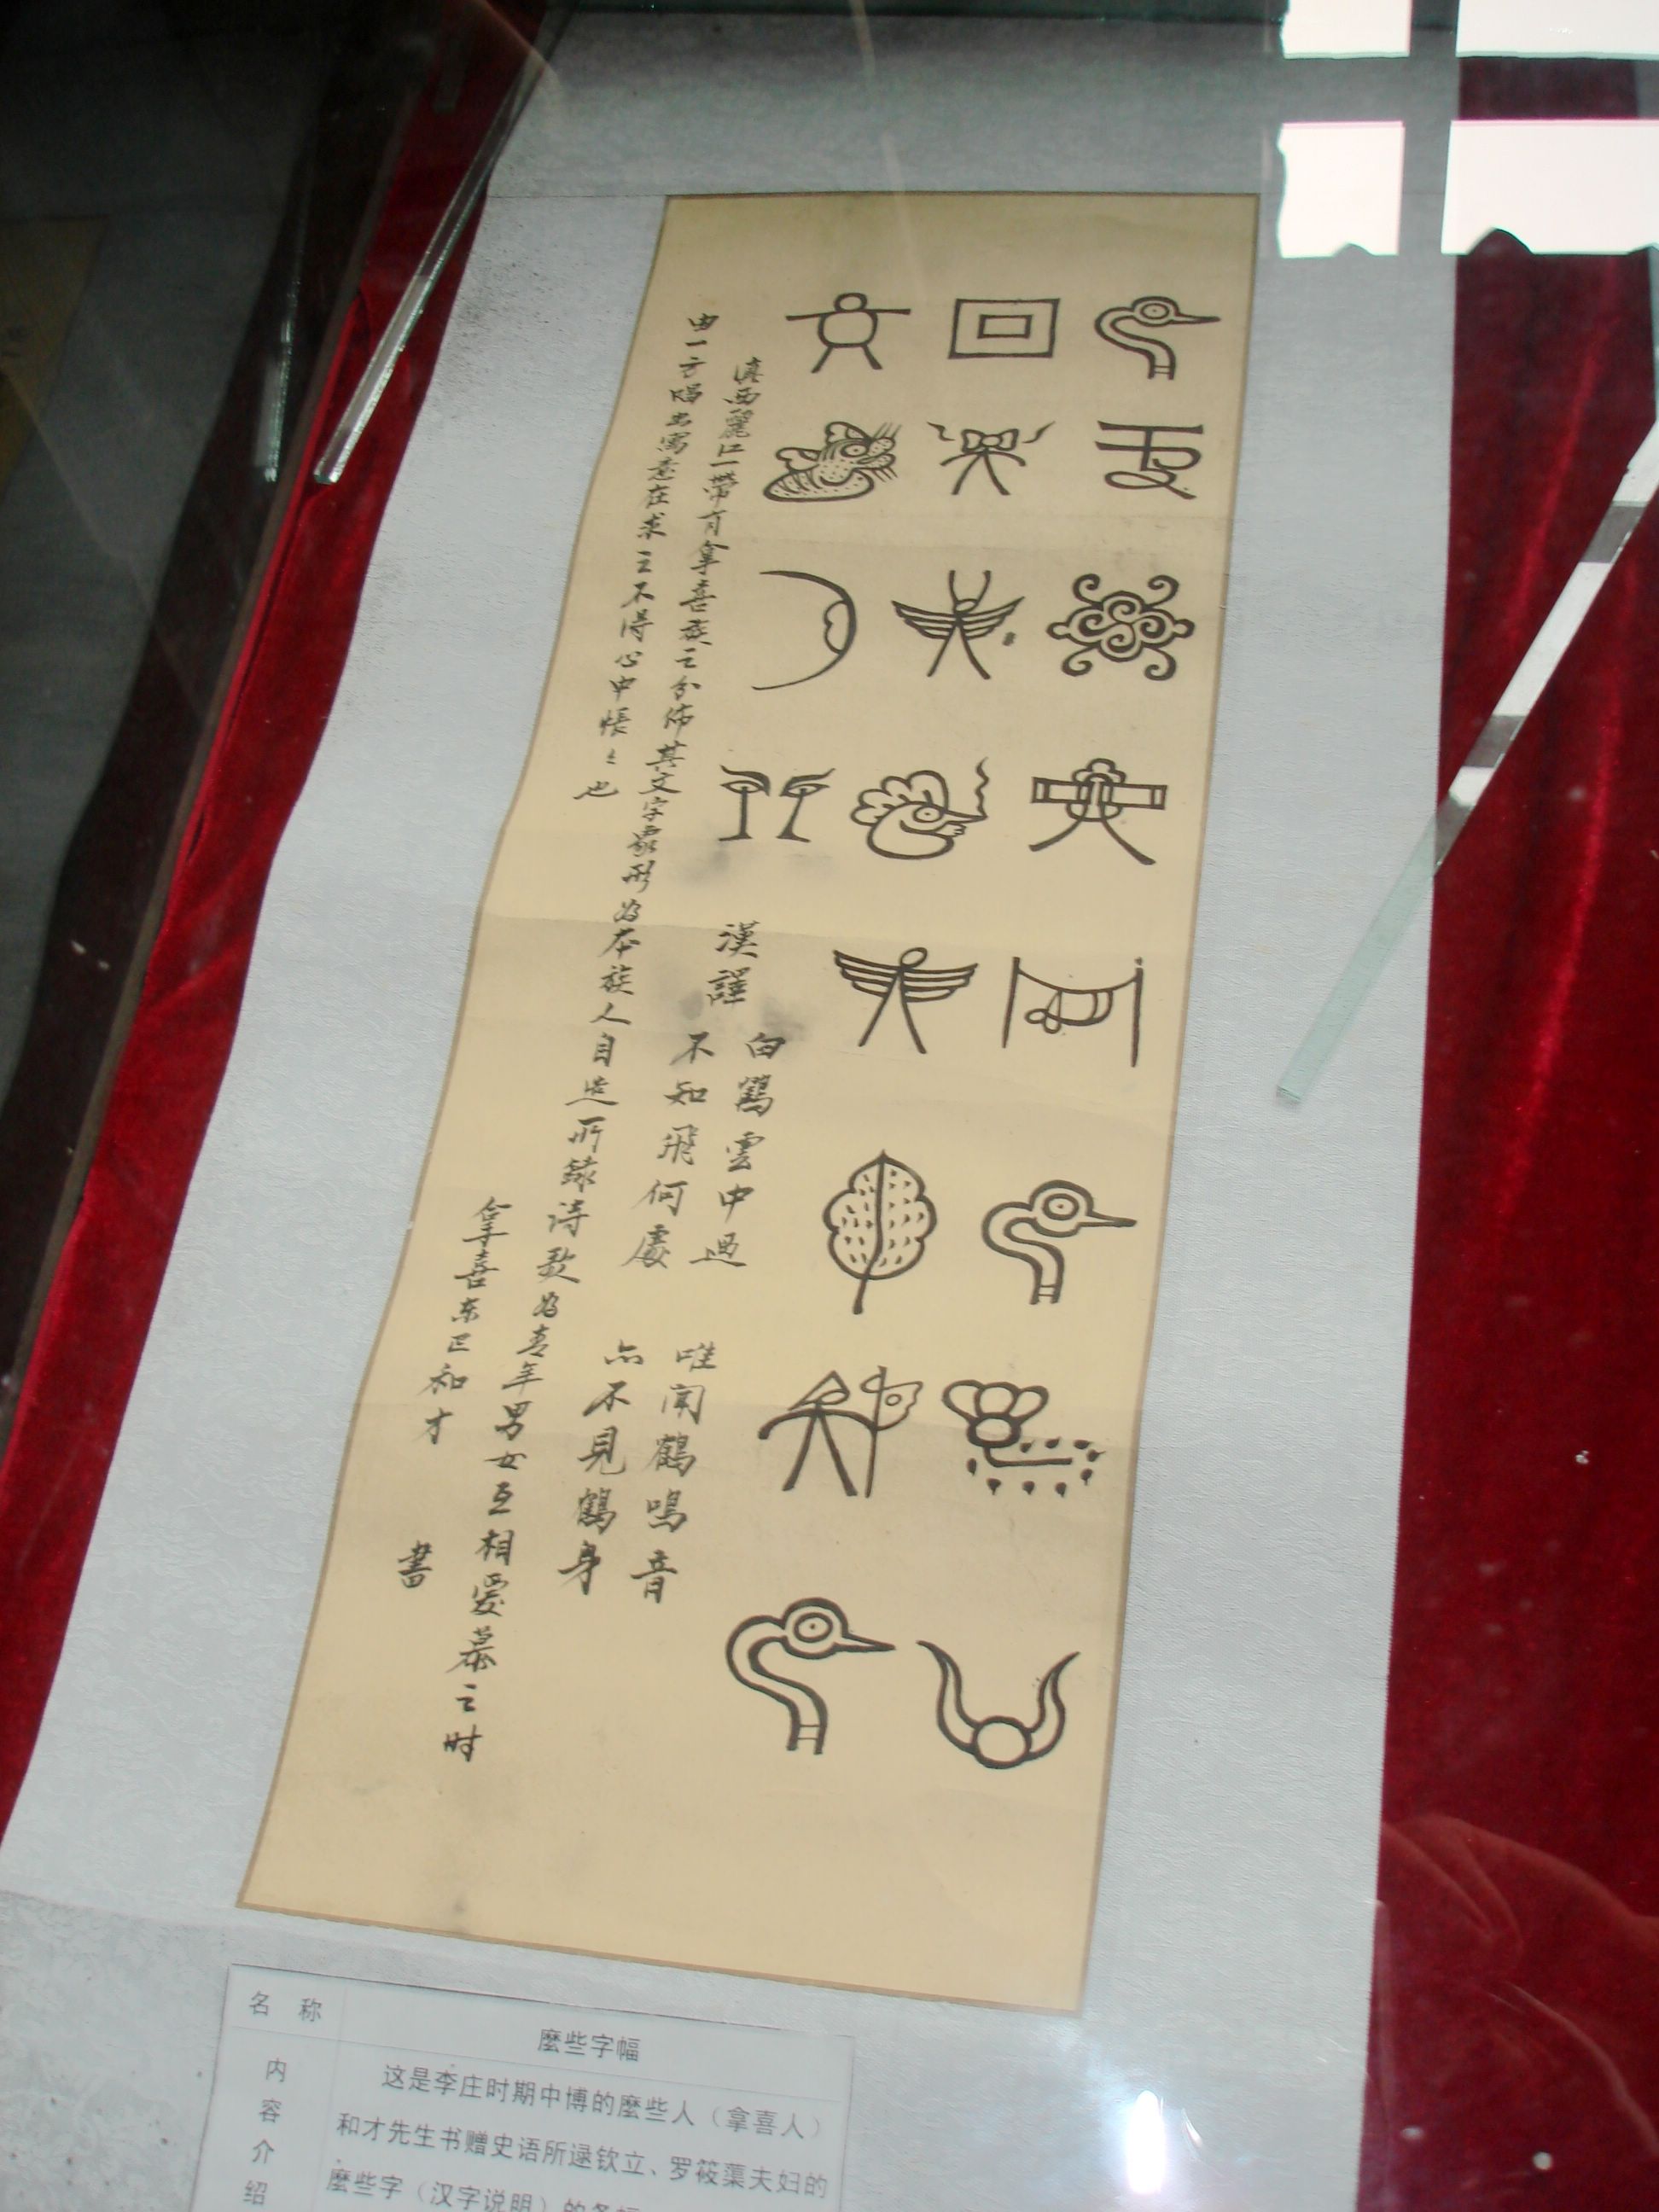 滇西麗江一帶有拿喜族之分佈其文字象形為本族人自造所録诗歌為青年男女互相愛慕之时
由一方唱出寓意在求之不得心中悵々也
漢譯
白鶴雲中過
不知飛何處
唯聞鶴鳴音
亦不見鶴身
拿喜东巴和才 書
名 称
麼些字幅
内容介绍
这是李庄时期中博的麼些人（拿喜人）
和才先生书赠史语所逯钦立、罗筱蕖夫妇的
麼些字（汉字说明）的条幅